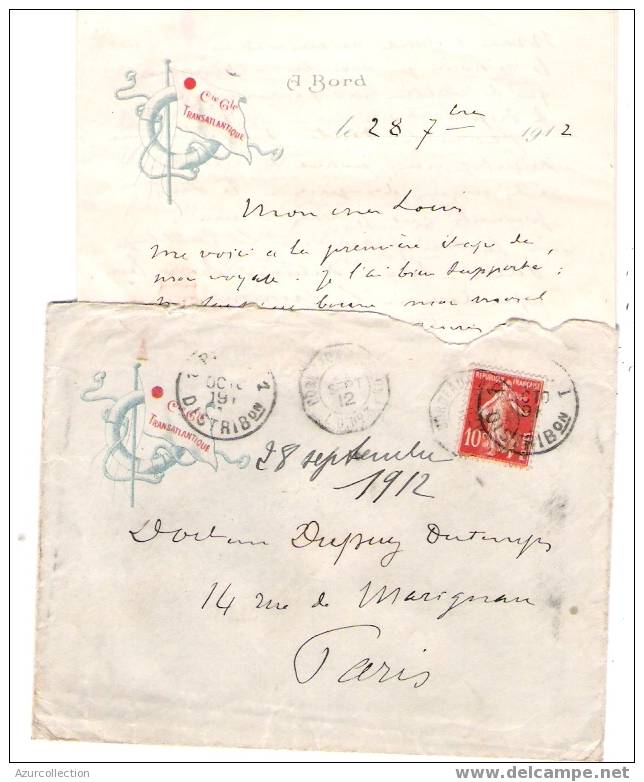 A Bord
Cie Gle
TRANSATLANTIQUE
le 28 7bre 1912
Mon cher Louis
me voici a la première étape de
mon voyage. Je l'ai bien supporté ;
bonne mon moral
OCT
191
DISTRIBON
SEPT
12
REPUBLIQUE FRANÇAISE
10
DISTRIBON
Cie Gle
TRANSATLANTIQUE
28 septembre
1912
Docteur Dupuy Dutemps
14 rue de Marignan
Paris
Azurcollection
www.delcampe.net